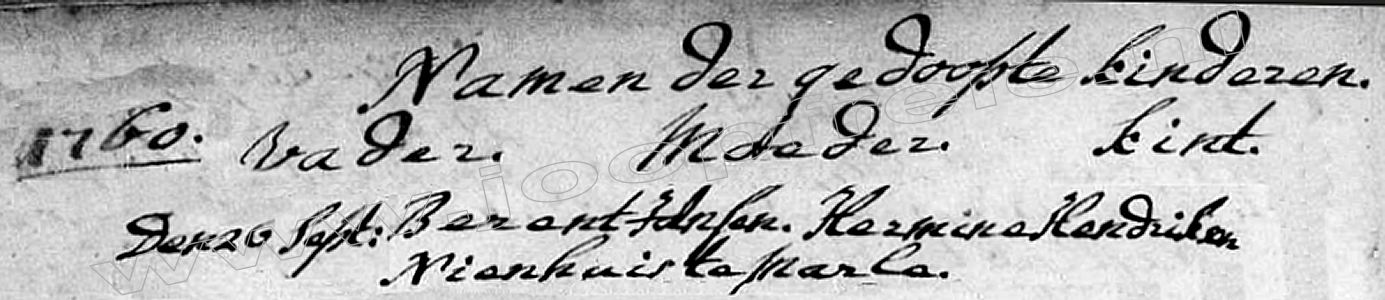 Namen der gedoopte kinderen.
1760. Vader. Moeder. kint.
Den 20 Sept: Berent Jansen. Harmine Hendriken
Nienhuis te Marle.